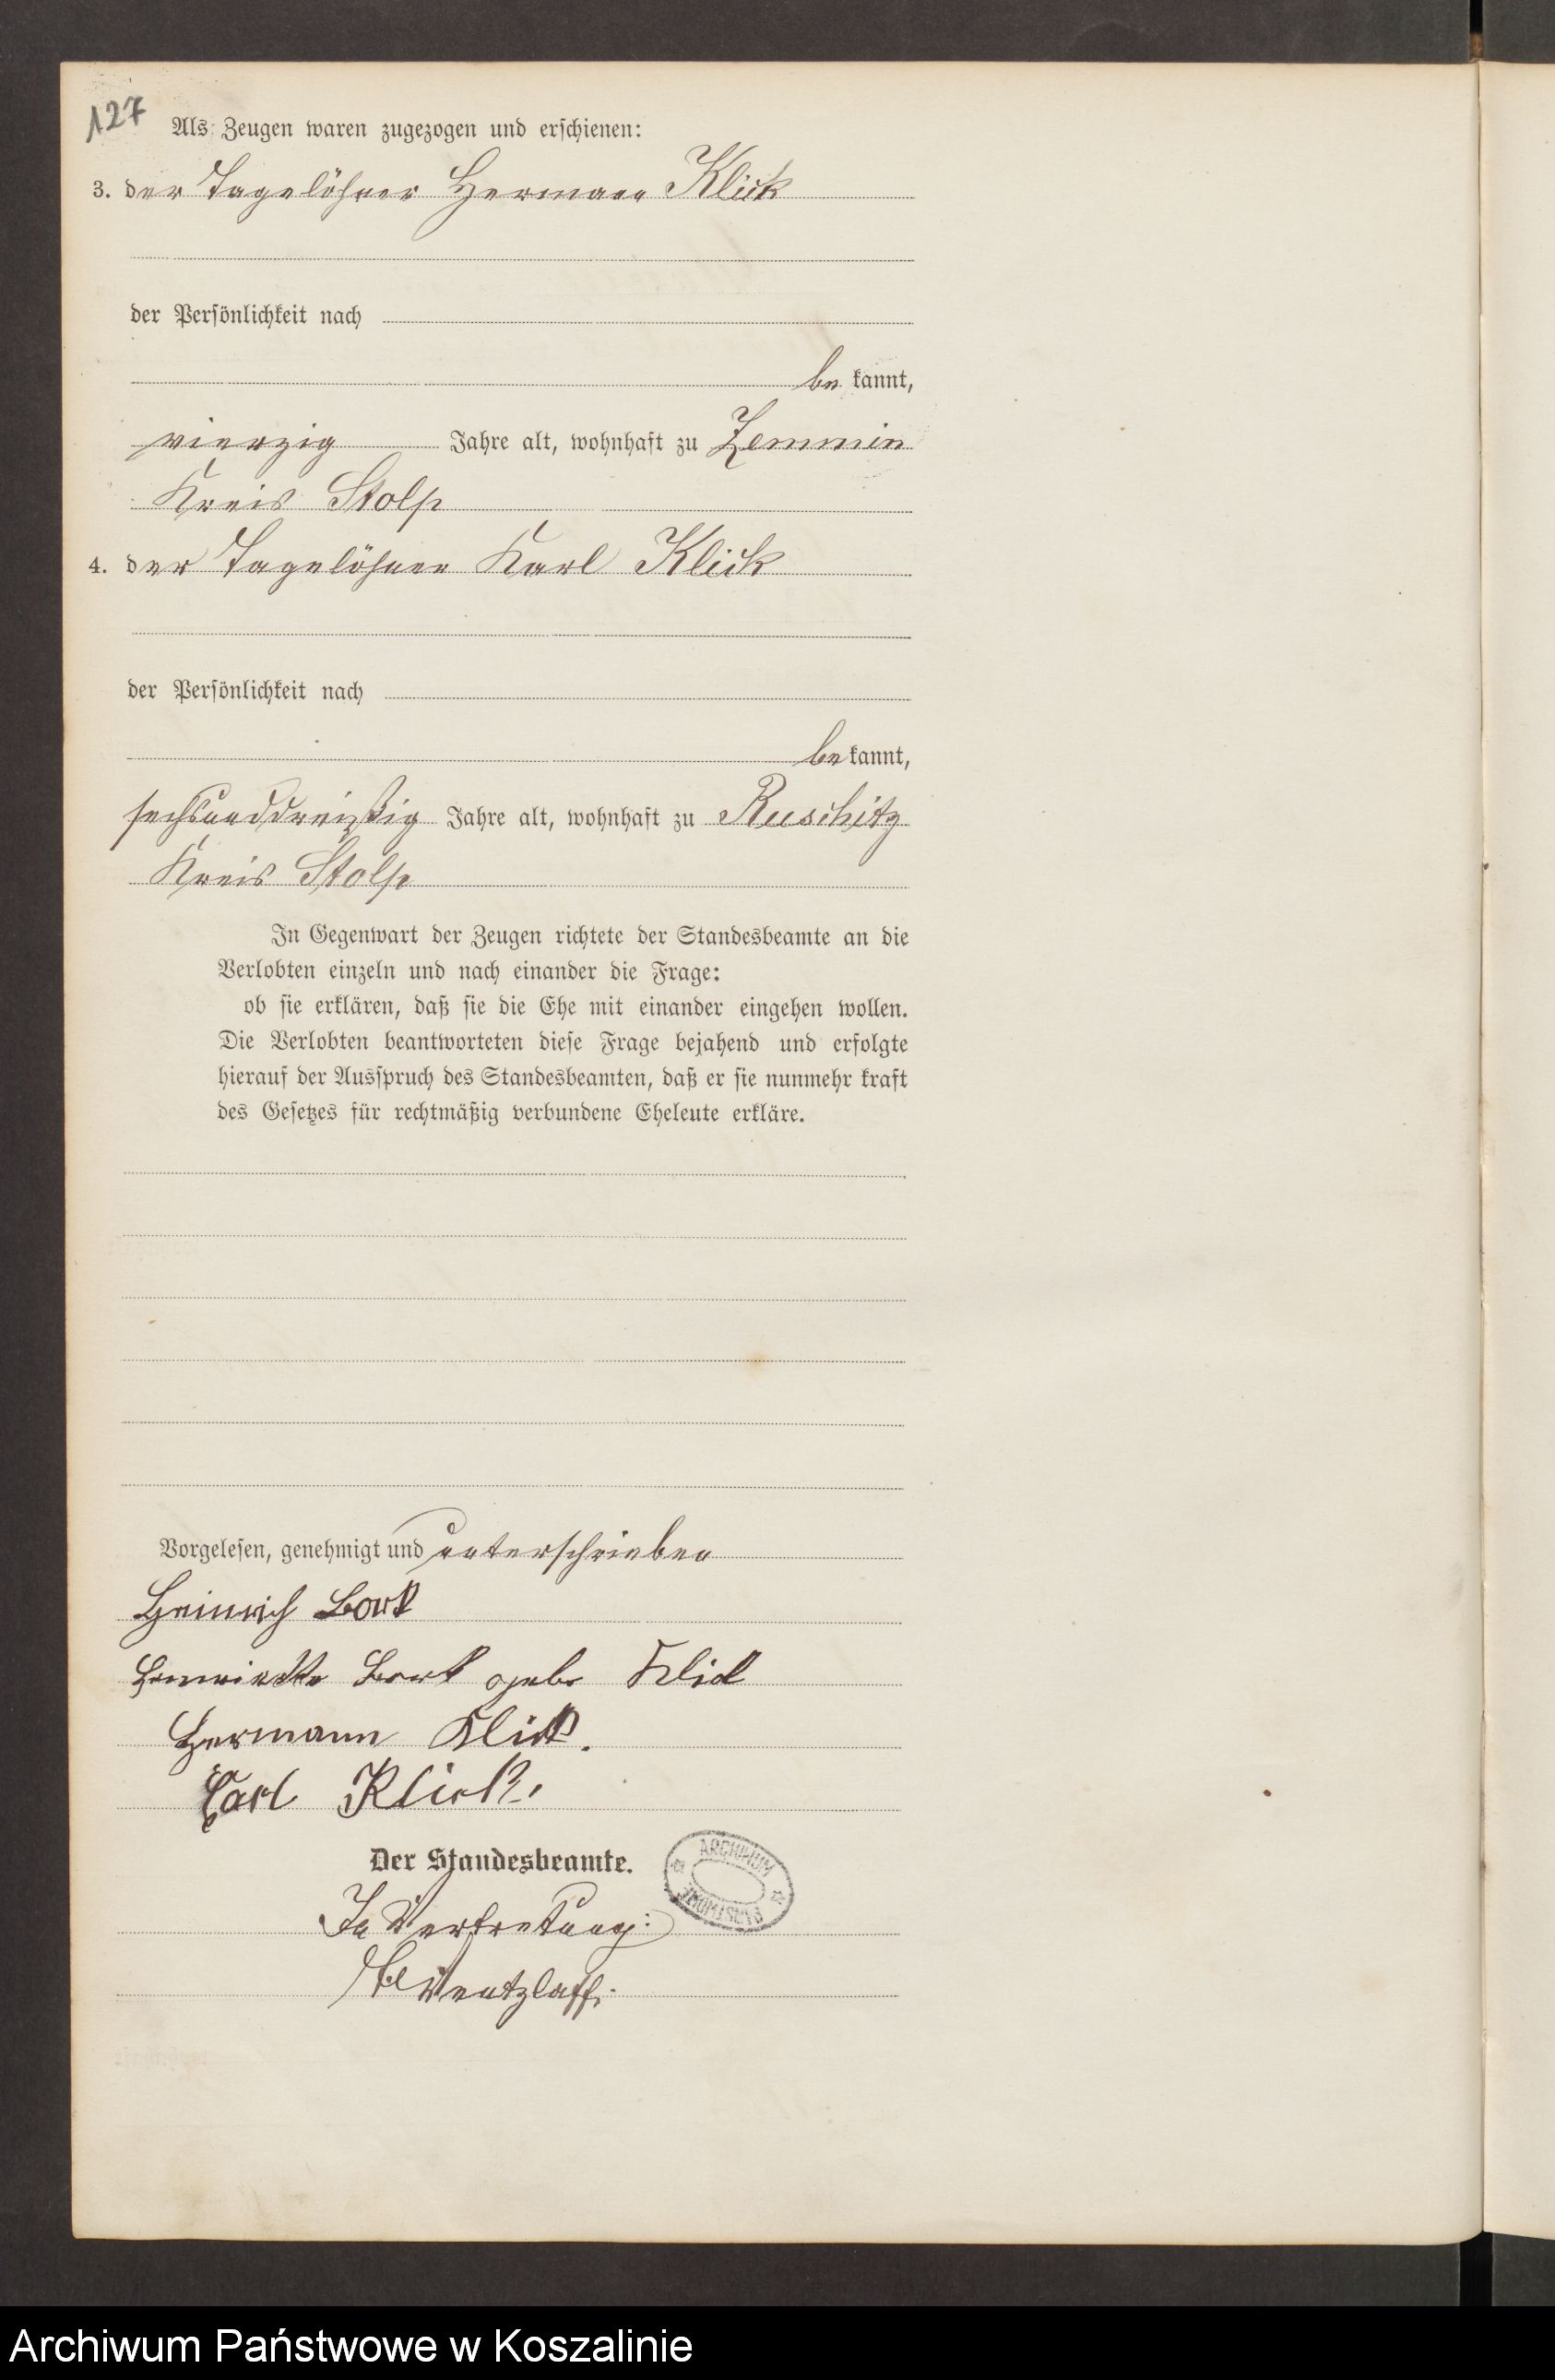 127
Als Zeugen waren zugezogen und erschienen:
3. der Tagelöhner Hermann Klick
der Persönlichkeit nach
be kannt,
vierzig Jahre alt, wohnhaft zu Zemmin
Kreis Stolp
4. der Tagelöhner Karl Klick
der Persönlichkeit nach
be kannt,
sechsunddreißig Jahre alt, wohnhaft zu Ruschitz
Kreis Stolp
In Gegenwart der Zeugen richtete der Standesbeamte an die
Verlobten einzeln und nach einander die Frage:
ob sie erklären, daß sie die Ehe mit einander eingehen wollen.
Die Verlobten beantworteten diese Frage bejahend und erfolgte
hierauf der Ausspruch des Standesbeamten, daß er sie nunmehr kraft
des Gesetzes für rechtmäßig verbundene Eheleute erkläre.
Vorgelesen, genehmigt und unterschrieben
Heinrich Bork
Henriette Bork geb. Klick
Hermann Klick.
Carl Klick.
Der Standesbeamte.
ARCHIWUM
PAŃSTWOWE
In Vertretung:
Wentzlaff.
Archiwum Państwowe w Koszalinie